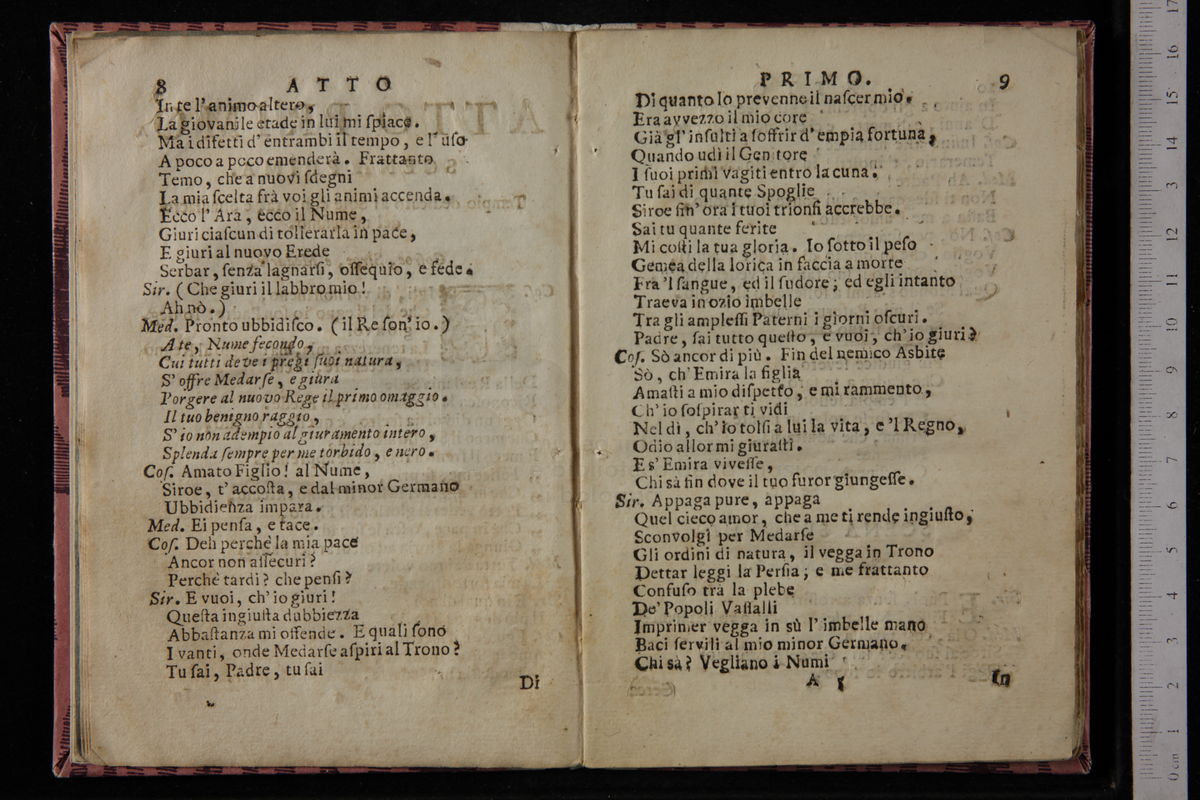 8 ATTO
In te l'animo altero,
La giovanile etade in lui mi ſpiace.
Ma i difetti d'entrambi il tempo, e l'uſo
A poco a poco emenderà. Frattanto
Temo, che a nuovi ſdegni
La mia ſcelta frà voi gli animi accenda.
Ecco l'Ara, ecco il Nume,
Giuri ciaſcun di tollerarla in pace,
E giuri al nuovo Erede
Serbar, ſenza lagnarſi, oſſequio, e fede.
Sir. (Che giuri il labbro mio!
Ah nò.)
Med. Pronto ubbidiſco. (il Re ſon' io.)
A te, Nume fecondo,
Cui tutti deve i pregi ſuoi natura,
S'offre Medarſe, e giura
Porgere al nuovo Rege il primo omaggio.
Il tuo benigno raggio,
S'io non adempio al giuramento intero,
Splenda ſempre per me torbido, e nero.
Coſ. Amato Figlio! al Nume,
Siroe, t'accoſta, e dal minor Germano
Ubbidienza impara.
Med. Ei penſa, e tace.
Coſ. Deh perchè la mia pace
Ancor non aſſecuri?
Perchè tardi? che penſi?
Sir. E vuoi, ch'io giuri!
Queſta ingiuſta dubbiezza
Abbaſtanza mi offende. E quali ſono
I vanti, onde Medarſe aſpiri al Trono?
Tu ſai, Padre, tu ſai
Di
PRIMO. 9
Di quanto Io prevenne il naſcer mio.
Era avvezzo il mio core
Già gl'inſulti a ſoffrir d'empia fortuna,
Quando udì il Genitore
I ſuoi primi vagiti entro la cuna.
Tu ſai di quante Spoglie
Siroe ſin'ora i tuoi trionfi accrebbe.
Sai tu quante ferite
Mi coſti la tua gloria. Io ſotto il peſo
Gemea della lorica in faccia a morte
Fra 'l ſangue, ed il ſudore; ed egli intanto
Traeva in ozio imbelle
Tra gli ampleſſi Paterni i giorni oſcuri.
Padre, ſai tutto queſto, e vuoi, ch'io giuri?
Coſ. Sò ancor di più. Fin del nemico Asbite
Sò, ch'Emira la figlia
Amaſti a mio diſpetto, e mi rammento,
Ch'io ſoſpirar ti vidi
Nel dì, ch'io tolſi a lui la vita, e 'l Regno,
Odio allor mi giuraſti.
E s'Emira viveſſe,
Chi sà fin dove il tuo furor giungeſſe.
Sir. Appaga pure, appaga
Quel cieco amor, che a me ti rende ingiuſto,
Sconvolgi per Medarſe
Gli ordini di natura, il vegga in Trono
Dettar leggi la Perſia; e me frattanto
Confuſo tra la plebe
De' Popoli Vaſſalli
Imprimer vegga in sù l'imbelle mano
Baci ſervili al mio minor Germano.
Chi sà? Vegliano i Numi
A 5 In